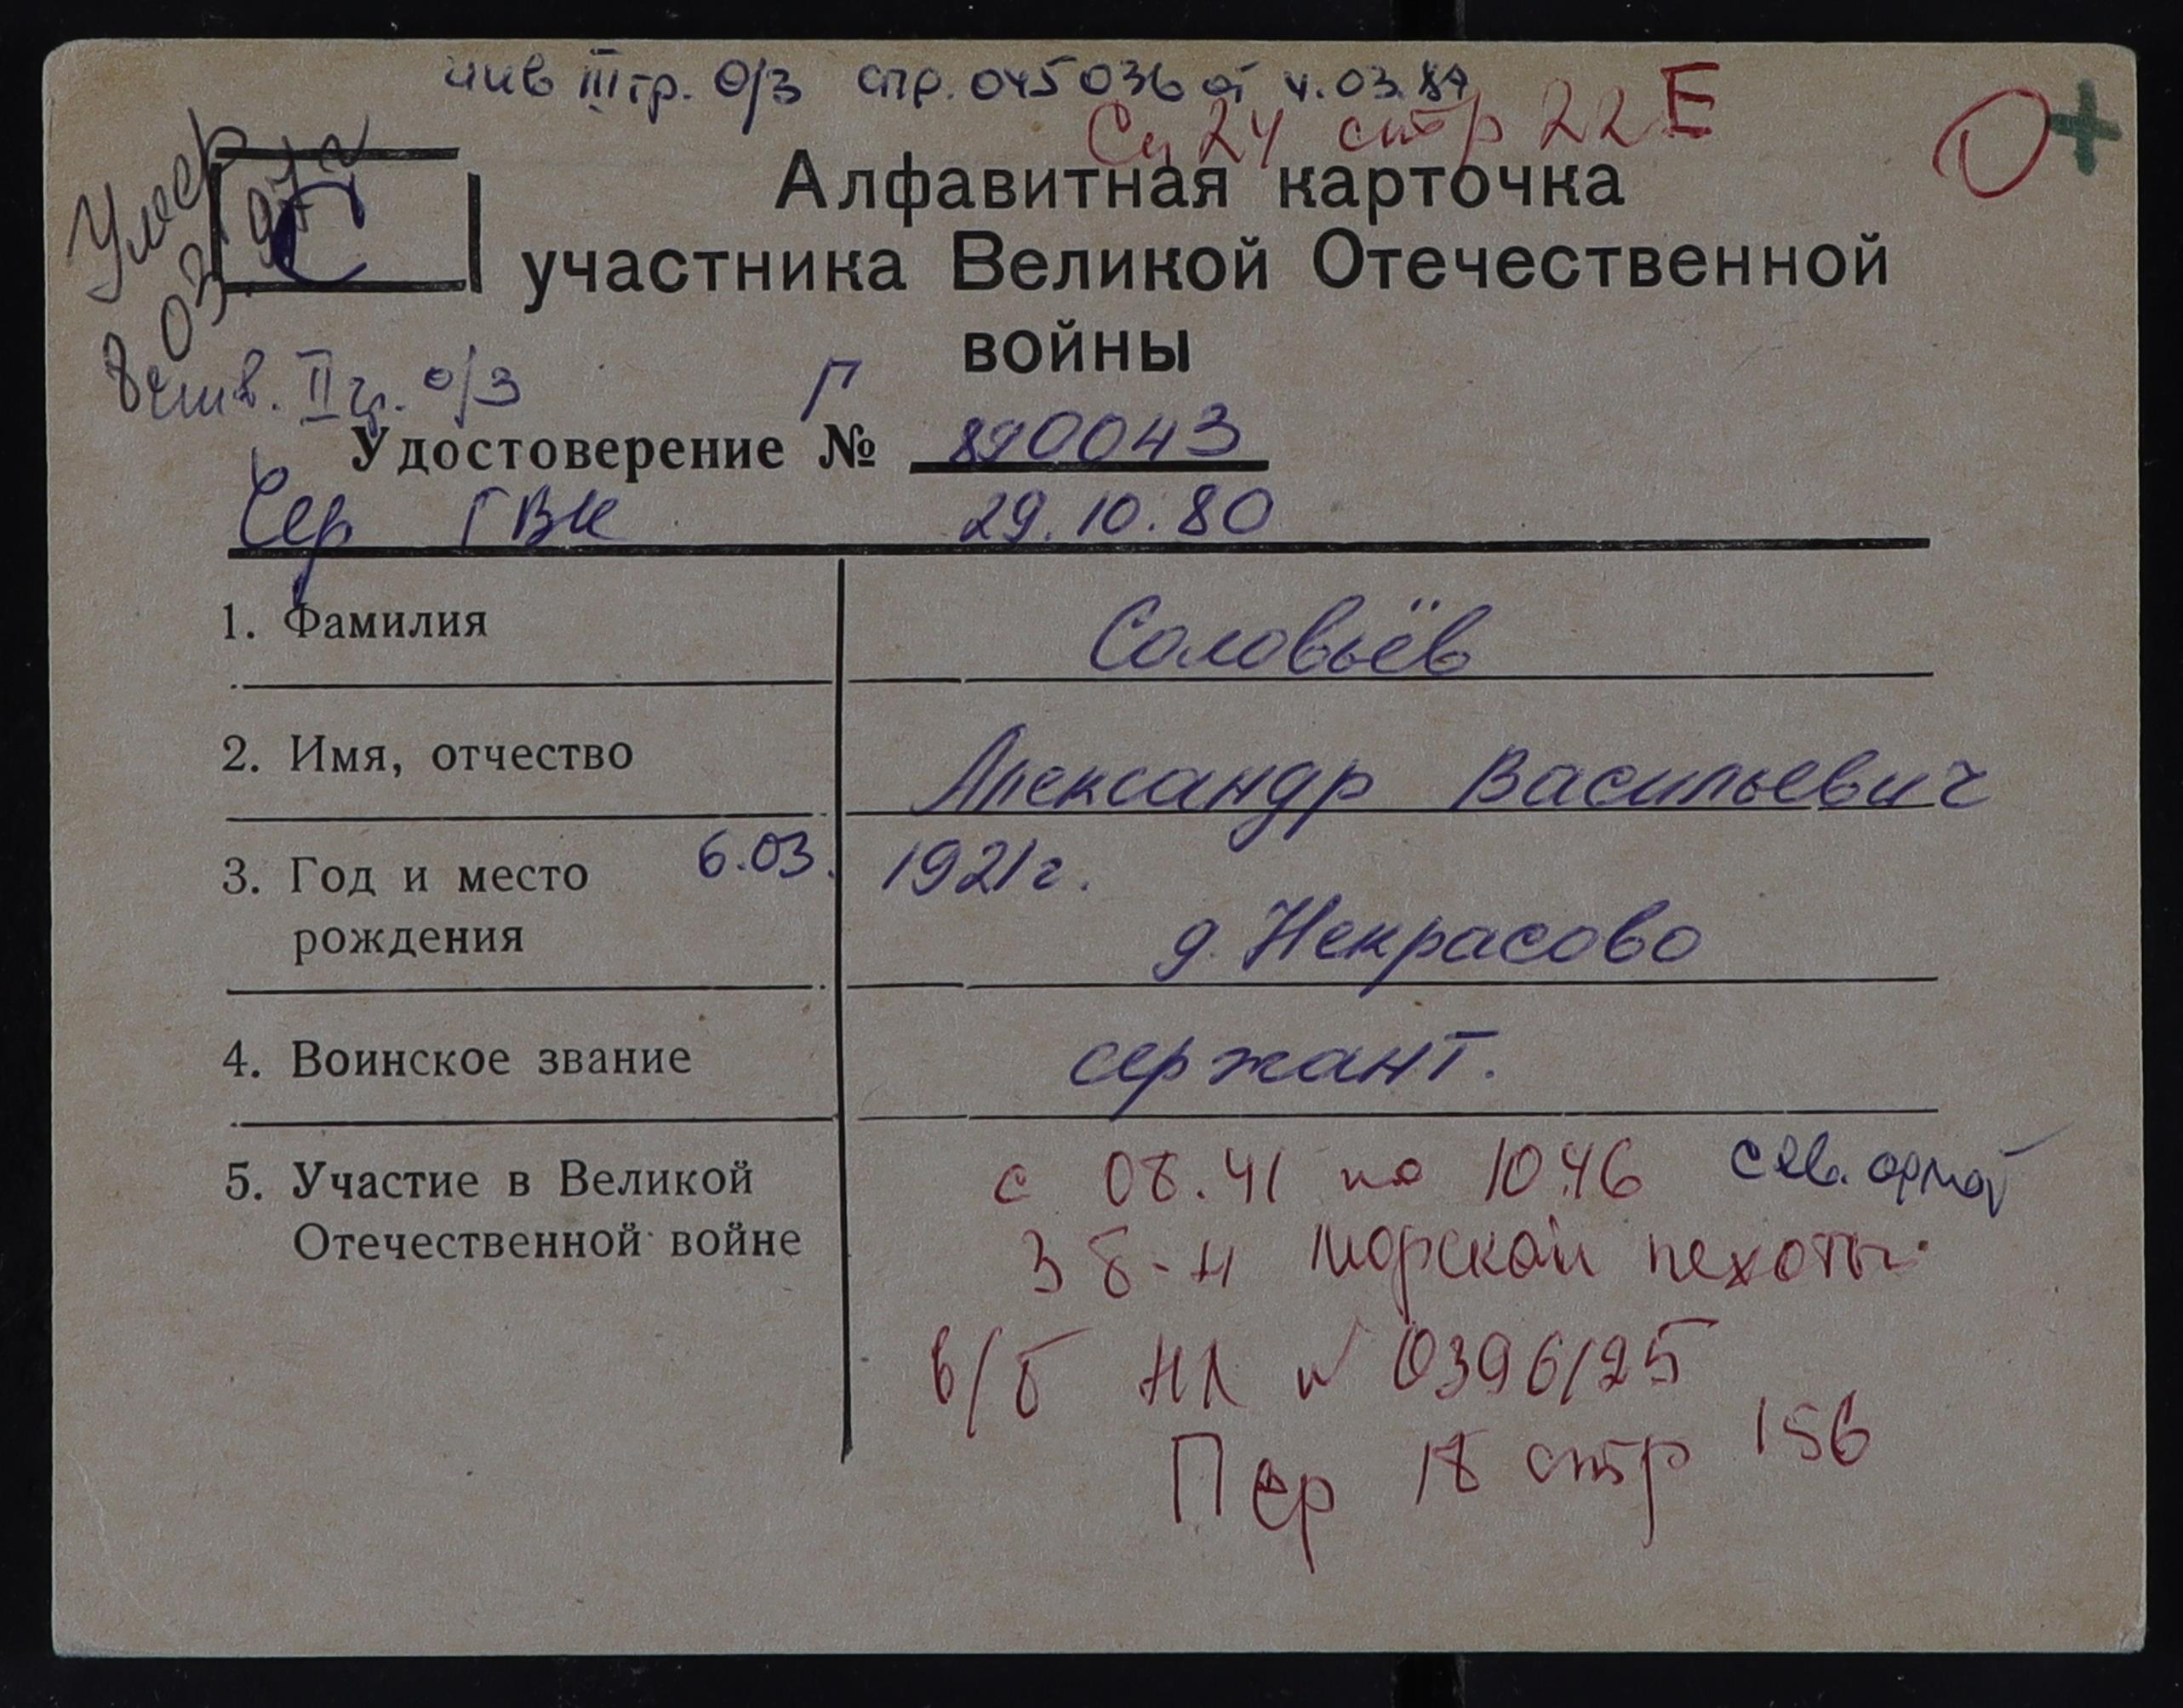 инв III гр. о/з спр. 045036 от 4.03.87
Сп 24 стр 22 Е
О+
Умер
03 97 г
С
Алфавитная карточка
участника Великой Отечественной
войны
инв. II гр. о/з
Г
Удостоверение № 890043
Чер ГВК 29.10.80
1. Фамилия Соловьёв
2. Имя, отчество Александр Васильевич
3. Год и место 6.03. 1921 г.
рождения д. Некрасово
4. Воинское звание сержант.
5. Участие в Великой с 08.41 по 10.46
Отечественной войне 3 б-н морской пехоты
в/б НА № 0396125
Пер 18 стр 156